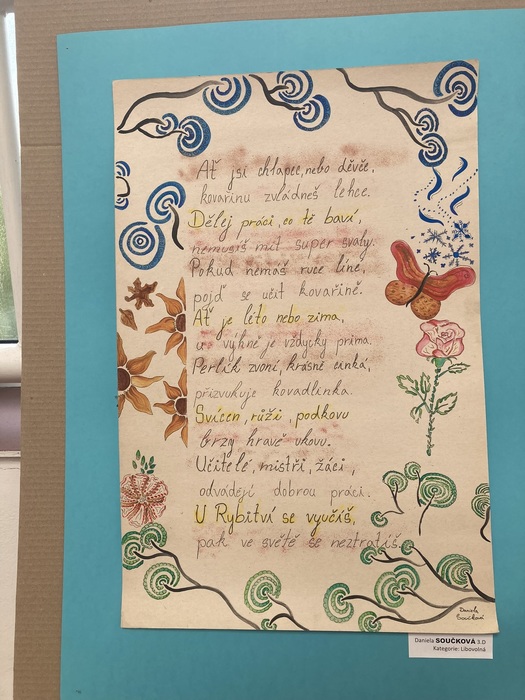 Ať jsi chlapec, nebo děvče,
kovařinu zvládneš lehce.
Dělej práci, co tě baví,
nemusíš mít super svaly.
Pokud nemáš ruce líné,
pojď se učit kovařině.
Ať je léto nebo zima,
u výhně je vždycky príma.
Perlík zvoní, krásně cinká,
přizvukuje kovadlinka.
Svícen, růži, podkovu
brzy hravě ukovu.
Učitelé, mistři, žáci,
odvádějí dobrou práci.
U Rybitví se vyučíš,
pak ve světě se neztratíš.
Daniela
Součková
Daniela SOUČKOVÁ 3.D
Kategorie: Libovolná